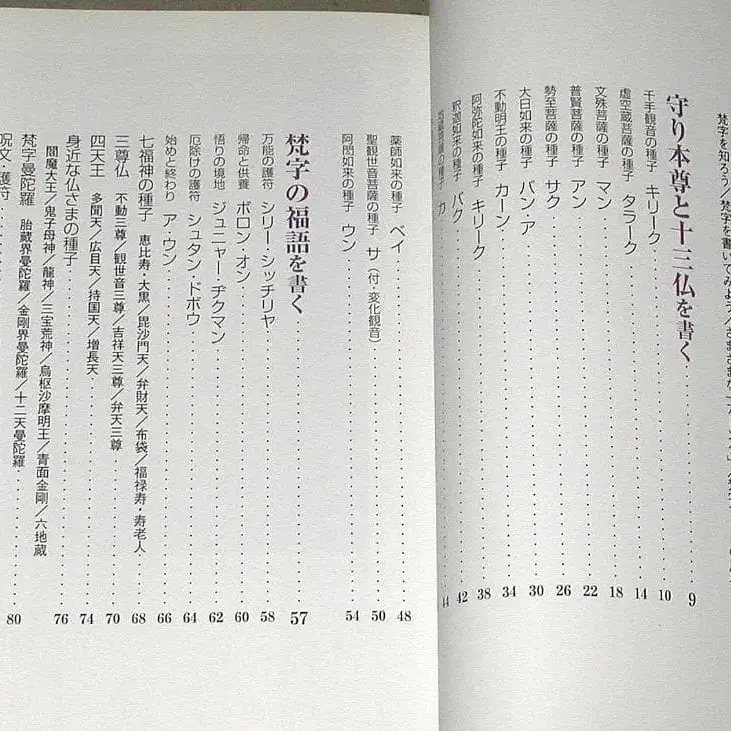 梵字を知ろう／梵字を書いてみよう／さまざまな
守り本尊と十三仏を書く 9
千手観音の種子 キリーク 10
虚空蔵菩薩の種子 タラーク 14
文殊菩薩の種子 マン 18
普賢菩薩の種子 アン 22
勢至菩薩の種子 サク 26
大日如来の種子 バン・ア 30
不動明王の種子 カーン 34
阿弥陀如来の種子 キリーク 38
釈迦如来の種子 バク 42
地蔵菩薩の種子 カ 44
薬師如来の種子 ベイ 48
聖観世音菩薩の種子 サ（付・変化観音） 50
阿閦如来の種子 ウン 54
梵字の福語を書く 57
万能の護符 シリー・シッチリヤ 58
帰命と供養 ボロン・オン 60
悟りの境地 ジュニャー・ヂクマン 62
厄除けの護符 シュタン・ドボウ 64
始めと終わり ア・ウン 66
七福神の種子 恵比寿・大黒／毘沙門天／弁財天／布袋／福禄寿・寿老人 68
三尊仏 不動三尊／観世音三尊／吉祥天三尊／弁天三尊 70
四天王 多聞天／広目天／持国天／増長天 74
身近な仏さまの種子 76
閻魔大王／鬼子母神／龍神／三宝荒神／烏枢沙摩明王／青面金剛／六地蔵
梵字曼陀羅 胎蔵界曼陀羅／金剛界曼陀羅／十二天曼陀羅 80
呪文・護符